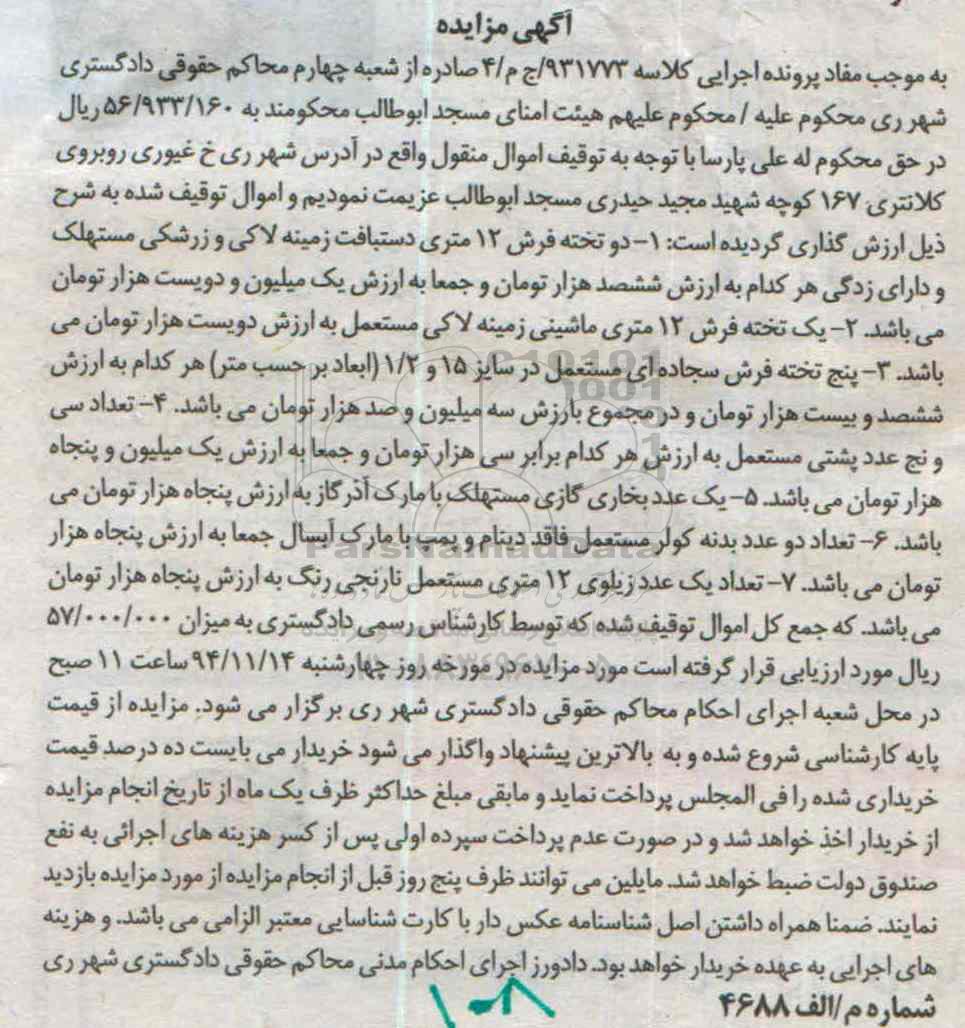 آگهی مزایده
به موجب مفاد پرونده اجرایی کلاسه ۹۳۱۷۷۳/ج م/۴ صادره از شعبه چهارم محاکم حقوقی دادگستری
شهر ری محکوم علیه / محکوم علیهم هیئت امنای مسجد ابوطالب محکومند به ۵۶/۹۳۳/۱۶۰ ریال
در حق محکوم له علی پارسا با توجه به توقیف اموال منقول واقع در آدرس شهر ری خ غیوری روبروی
کلانتری ۱۶۷ کوچه شهید مجید حیدری مسجد ابوطالب عزیمت نمودیم و اموال توقیف شده به شرح
ذیل ارزش گذاری گردیده است: ۱- دو تخته فرش ۱۲ متری دستبافت زمینه لاکی و زرشکی مستهلک
و دارای زدگی هر کدام به ارزش ششصد هزار تومان و جمعا به ارزش یک میلیون و دویست هزار تومان
می باشد. ۲- یک تخته فرش ۱۲ متری ماشینی زمینه لاکی مستعمل به ارزش دویست هزار تومان می
باشد. ۳- پنج تخته فرش سجاده ای مستعمل در سایز ۱۵ و ۱/۲ (ابعاد بر حسب متر) هر کدام به ارزش
ششصد و بیست هزار تومان و در مجموع بارزش سه میلیون و صد هزار تومان می باشد. ۴- تعداد سی
و نج عدد پشتی مستعمل به ارزش هر کدام برابر سی هزار تومان و جمعا به ارزش یک میلیون و پنجاه
هزار تومان می باشد. ۵- یک عدد بخاری گازی مستهلک با مارک آذر گاز به ارزش پنجاه هزار تومان می
باشد. ۶- تعداد دو عدد بدنه کولر مستعمل فاقد دینام و پمپ با مارک آبسال جمعا به ارزش پنجاه هزار
تومان می باشد. ۷- تعداد یک عدد زیلوی ۱۲ متری مستعمل نارنجی رنگ به ارزش پنجاه هزار تومان
می باشد. که جمع کل اموال توقیف شده که توسط کارشناس رسمی دادگستری به میزان ۵۷/۰۰۰/۰۰۰
ریال مورد ارزیابی قرار گرفته است مورد مزایده در مورخه روز چهارشنبه ۹۴/۱۱/۱۴ ساعت ۱۱ صبح
در محل شعبه اجرای احکام محاکم حقوقی دادگستری شهر ری برگزار می شود. مزایده از قیمت
پایه کارشناسی شروع شده و به بالاترین پیشنهاد واگذار می شود خریدار می بایست ده درصد قیمت
خریداری شده را فی المجلس پرداخت نماید و مابقی مبلغ حداکثر ظرف یک ماه از تاریخ انجام مزایده
از خریدار اخذ خواهد شد و در صورت عدم پرداخت سپرده اولی پس از کسر هزینه های اجرائی به نفع
صندوق دولت ضبط خواهد شد. مایلین می توانند ظرف پنج روز قبل از انجام مزایده از مورد مزایده بازدید
نمایند. ضمنا همراه داشتن اصل شناسنامه عکس دار با کارت شناسایی معتبر الزامی می باشد. و هزینه
های اجرایی به عهده خریدار خواهد بود. دادورز اجرای احکام مدنی محاکم حقوقی دادگستری شهر ری
شماره م/الف ۴۶۸۸
۱۰۸
ParsNamadData